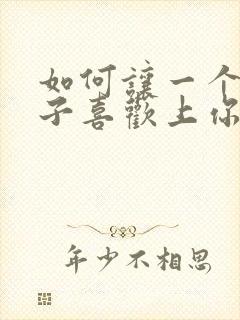 如何讓一个
子喜歡上你
年少不相思